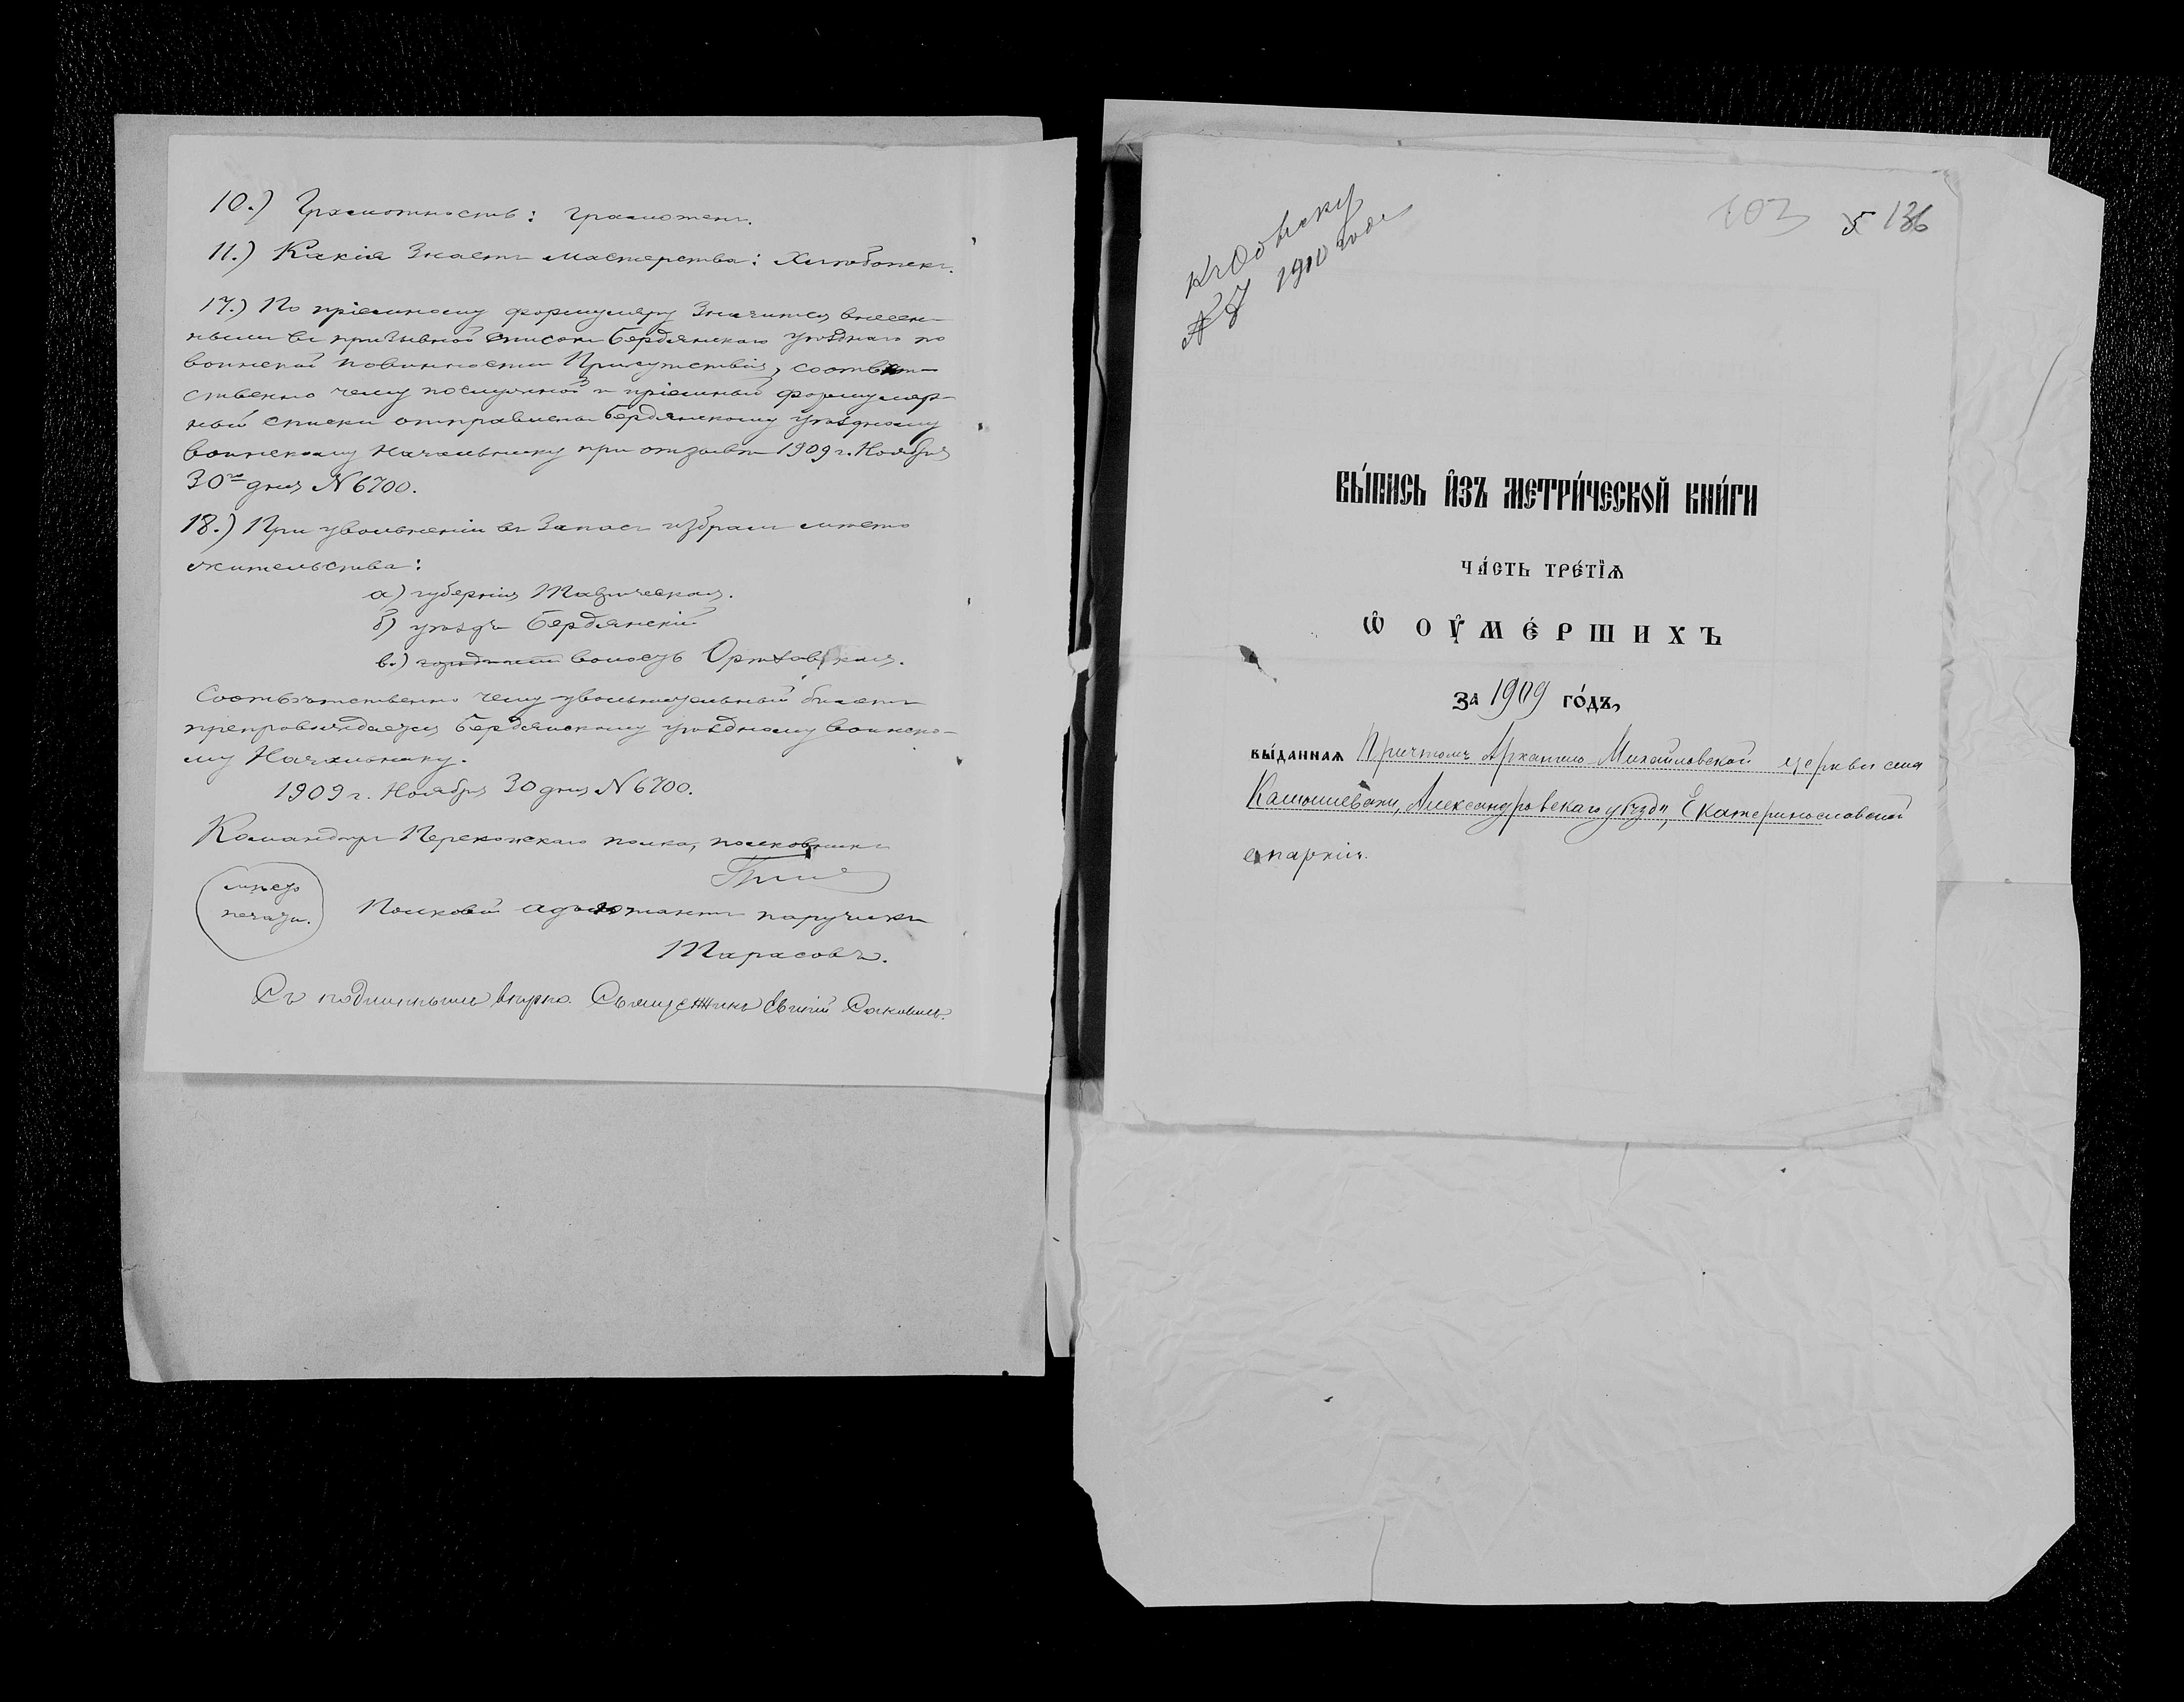 10.) Грамотность: грамотенъ.
11.) Какія знаетъ мастерства: Хлѣбопекъ.
17.) По пріемному формуляру значится внесен-
нымъ въ призывной списокъ Бердянскаго уѣзднаго по
воинской повинности Присутствія, соотвѣт-
ственно чему послужной и пріемный формуляр-
ный списки отправлены Бердянскому уѣздному
воинскому Начальнику при отзывѣ 1909 г. Ноября
30го дня N 6700.
18.) При увольненіи въ запасъ избралъ мѣсто
жительства:
а) губернія Таврическая.
б) уѣздъ Бердянскій
в.) волость Орѣховская.
Соотвѣтственно чему увольнительный билетъ
препровождается Бердянскому уѣздному воинско-
му Начальнику.
1909 г. Ноября 30 дня N 6700.
Командиръ полка, полковникъ
мѣсто
печати.
Полковой адъютантъ поручикъ
Тарасовъ.
Съ подлиннымъ вѣрно. Священникъ
136
Къ Обыску
N 7 1910 года
ВЫ́ПИСЬ И҆ЗЪ МЕТРИ́ЧЕСКОЙ КНИ́ГИ
ЧА́СТЬ ТРЕ́ТІѦ
Ѡ҆ ОУ҆МЕ́РШИХЪ
ЗА 1909 ГО́ДЪ,
ВЫ́ДАННАѦ Причтомъ Архангело-Михайловской церкви села
Александровскаго уѣзда, Екатеринославской
епархіи.